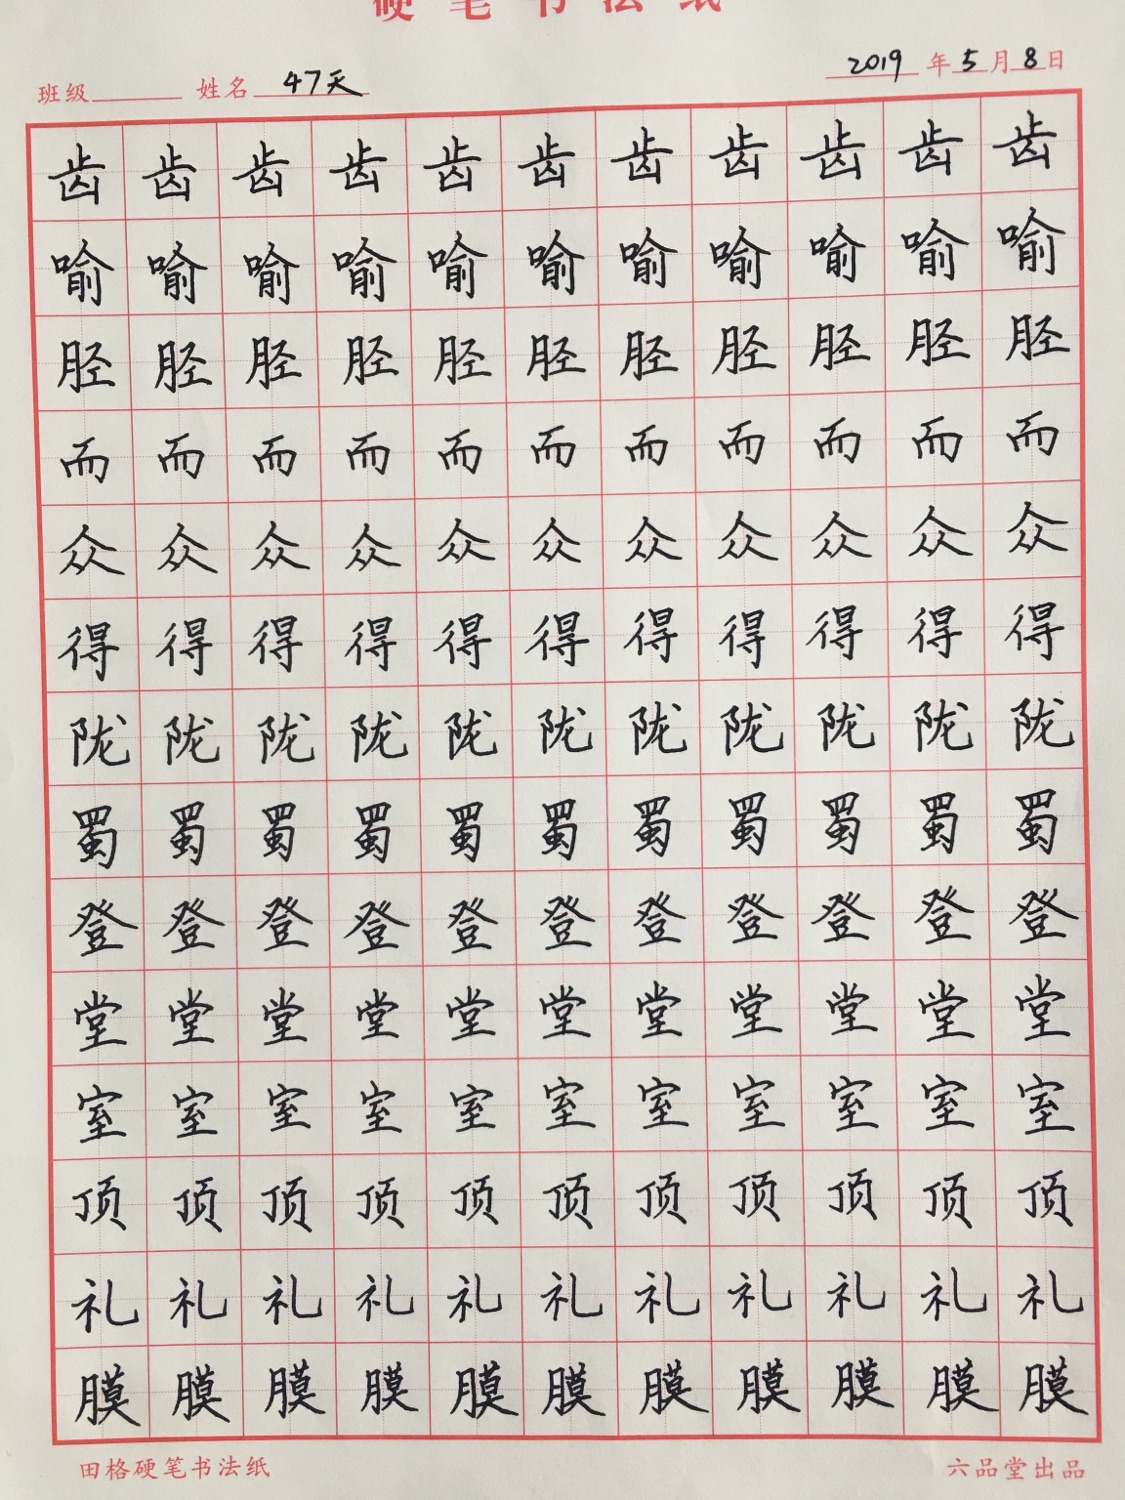 硬笔书法纸
班级 姓名 47天 2019年5月8日
齿齿齿齿齿齿齿齿齿齿齿
喻喻喻喻喻喻喻喻喻喻喻
胫胫胫胫胫胫胫胫胫胫胫
而而而而而而而而而而而
众众众众众众众众众众众
得得得得得得得得得得得
陇陇陇陇陇陇陇陇陇陇陇
蜀蜀蜀蜀蜀蜀蜀蜀蜀蜀蜀
登登登登登登登登登登登
堂堂堂堂堂堂堂堂堂堂堂
室室室室室室室室室室室
顶顶顶顶顶顶顶顶顶顶顶
礼礼礼礼礼礼礼礼礼礼礼
膜膜膜膜膜膜膜膜膜膜膜
田格硬笔书法纸 六品堂出品